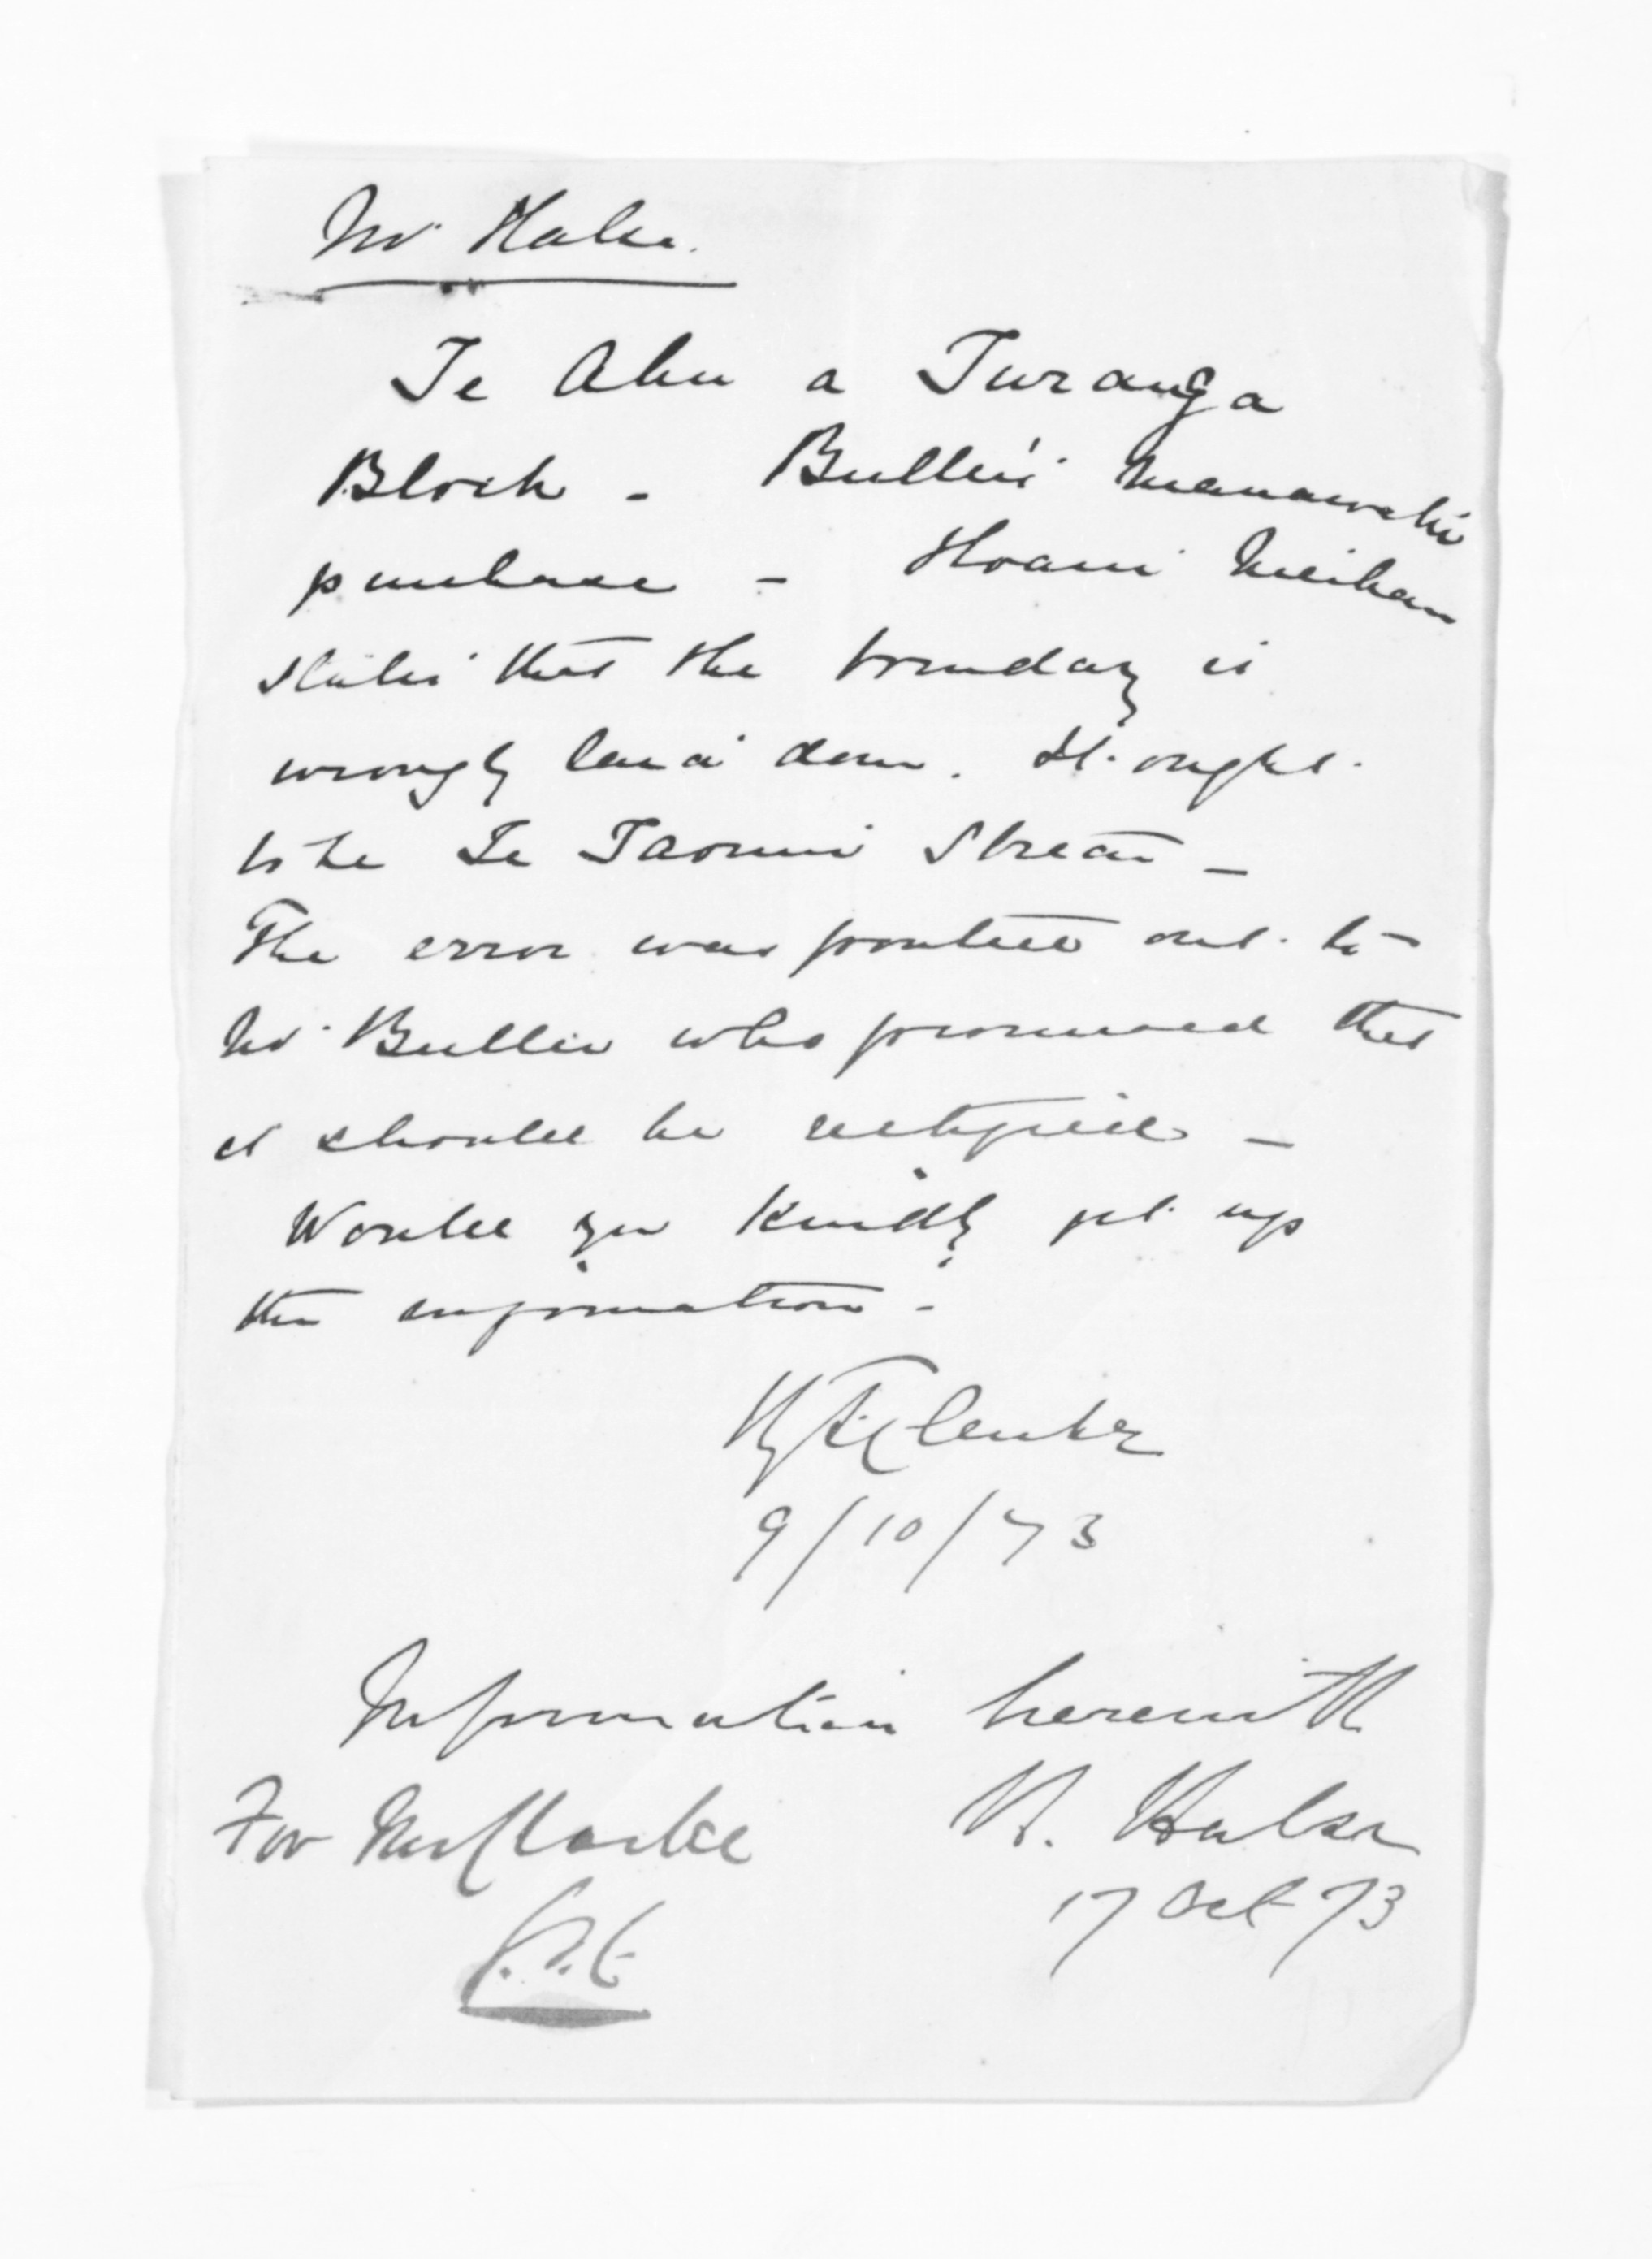 Mr Halse.
Te Ahu a Turanga
Block - Buller's Manawatu
purchase - Hoani Meihana
states that the boundary is
wrongly laid down. It ought
to be Te Taonui Stream -
The error was pointed out to
Mr Buller who promised that
it should be rectified -
Would you kindly get up
the information -
H T Clarke
9/10/73
Information herewith
For Mr Clarke H. Halse
17 Oct 73